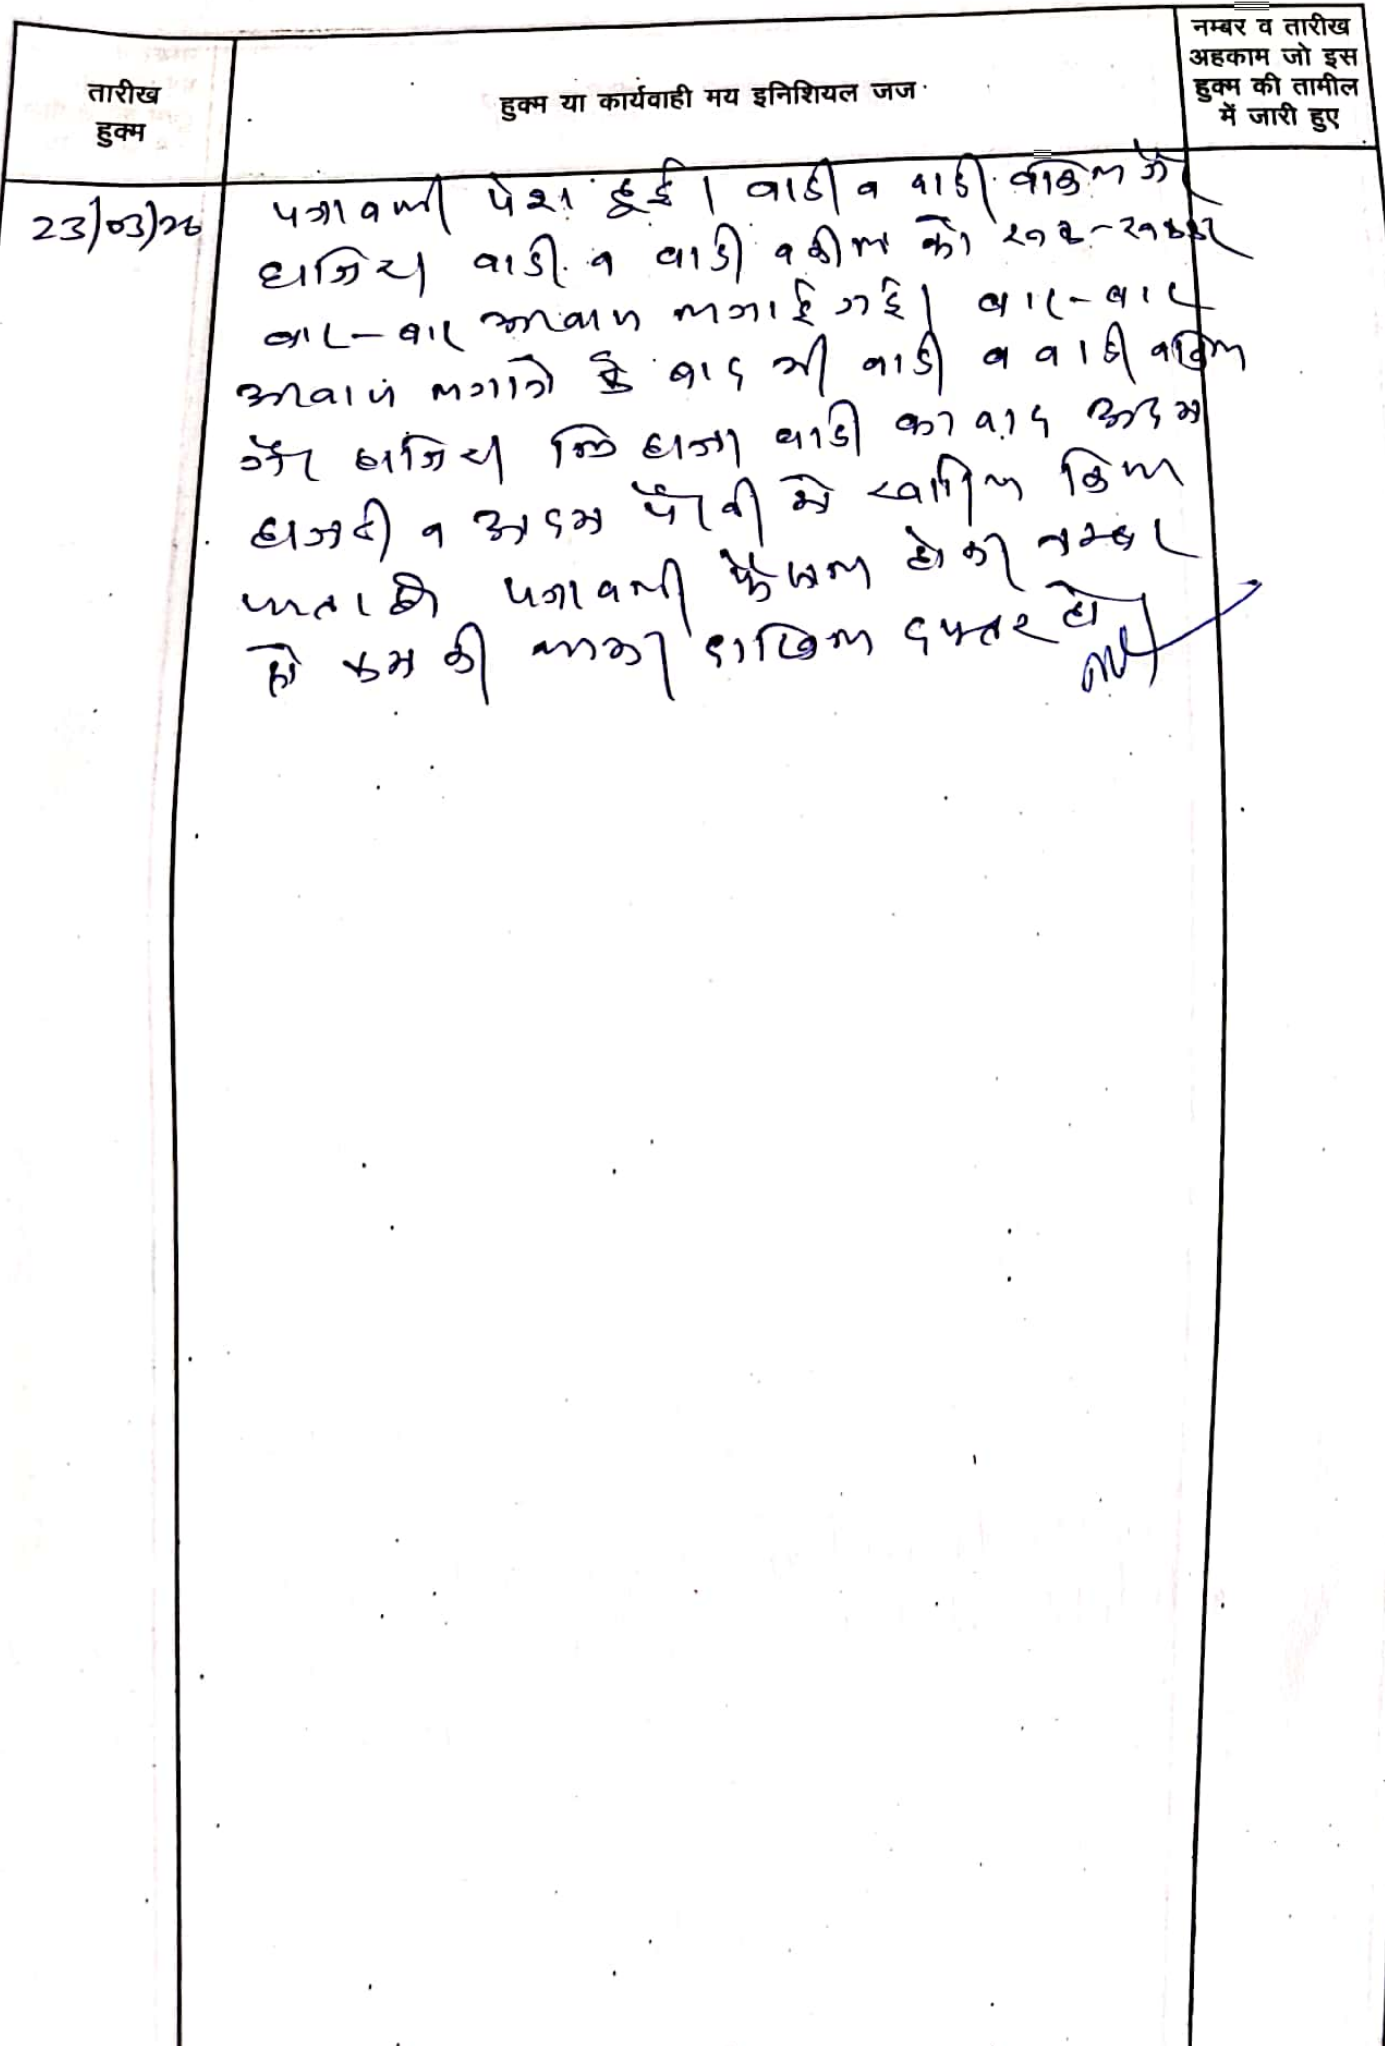 तारीख
हुक्म
हुक्म या कार्यवाही मय इनिशियल जज
नम्बर व तारीख
अहकाम जो इस
हुक्म की तामील
में जारी हुए
23/03/26
पत्रावली पेश हुई। वादी व वादी वकिल गैर
हाजिर। वादी व वादी वकील को रूक-रूककर
बार-बार आवाज लगाई गई। बार-बार
आवाज लगाने के बाद भी वादी व वादी वकिल
गैर हाजिर लिहाजा वादी का वाद अदम
हाजरी व अदम पैरवी मे खारिज किया
जाता है। पत्रावली फैसल होकर नम्बर
से कम की जाकर दाखिल दफ्तर हो